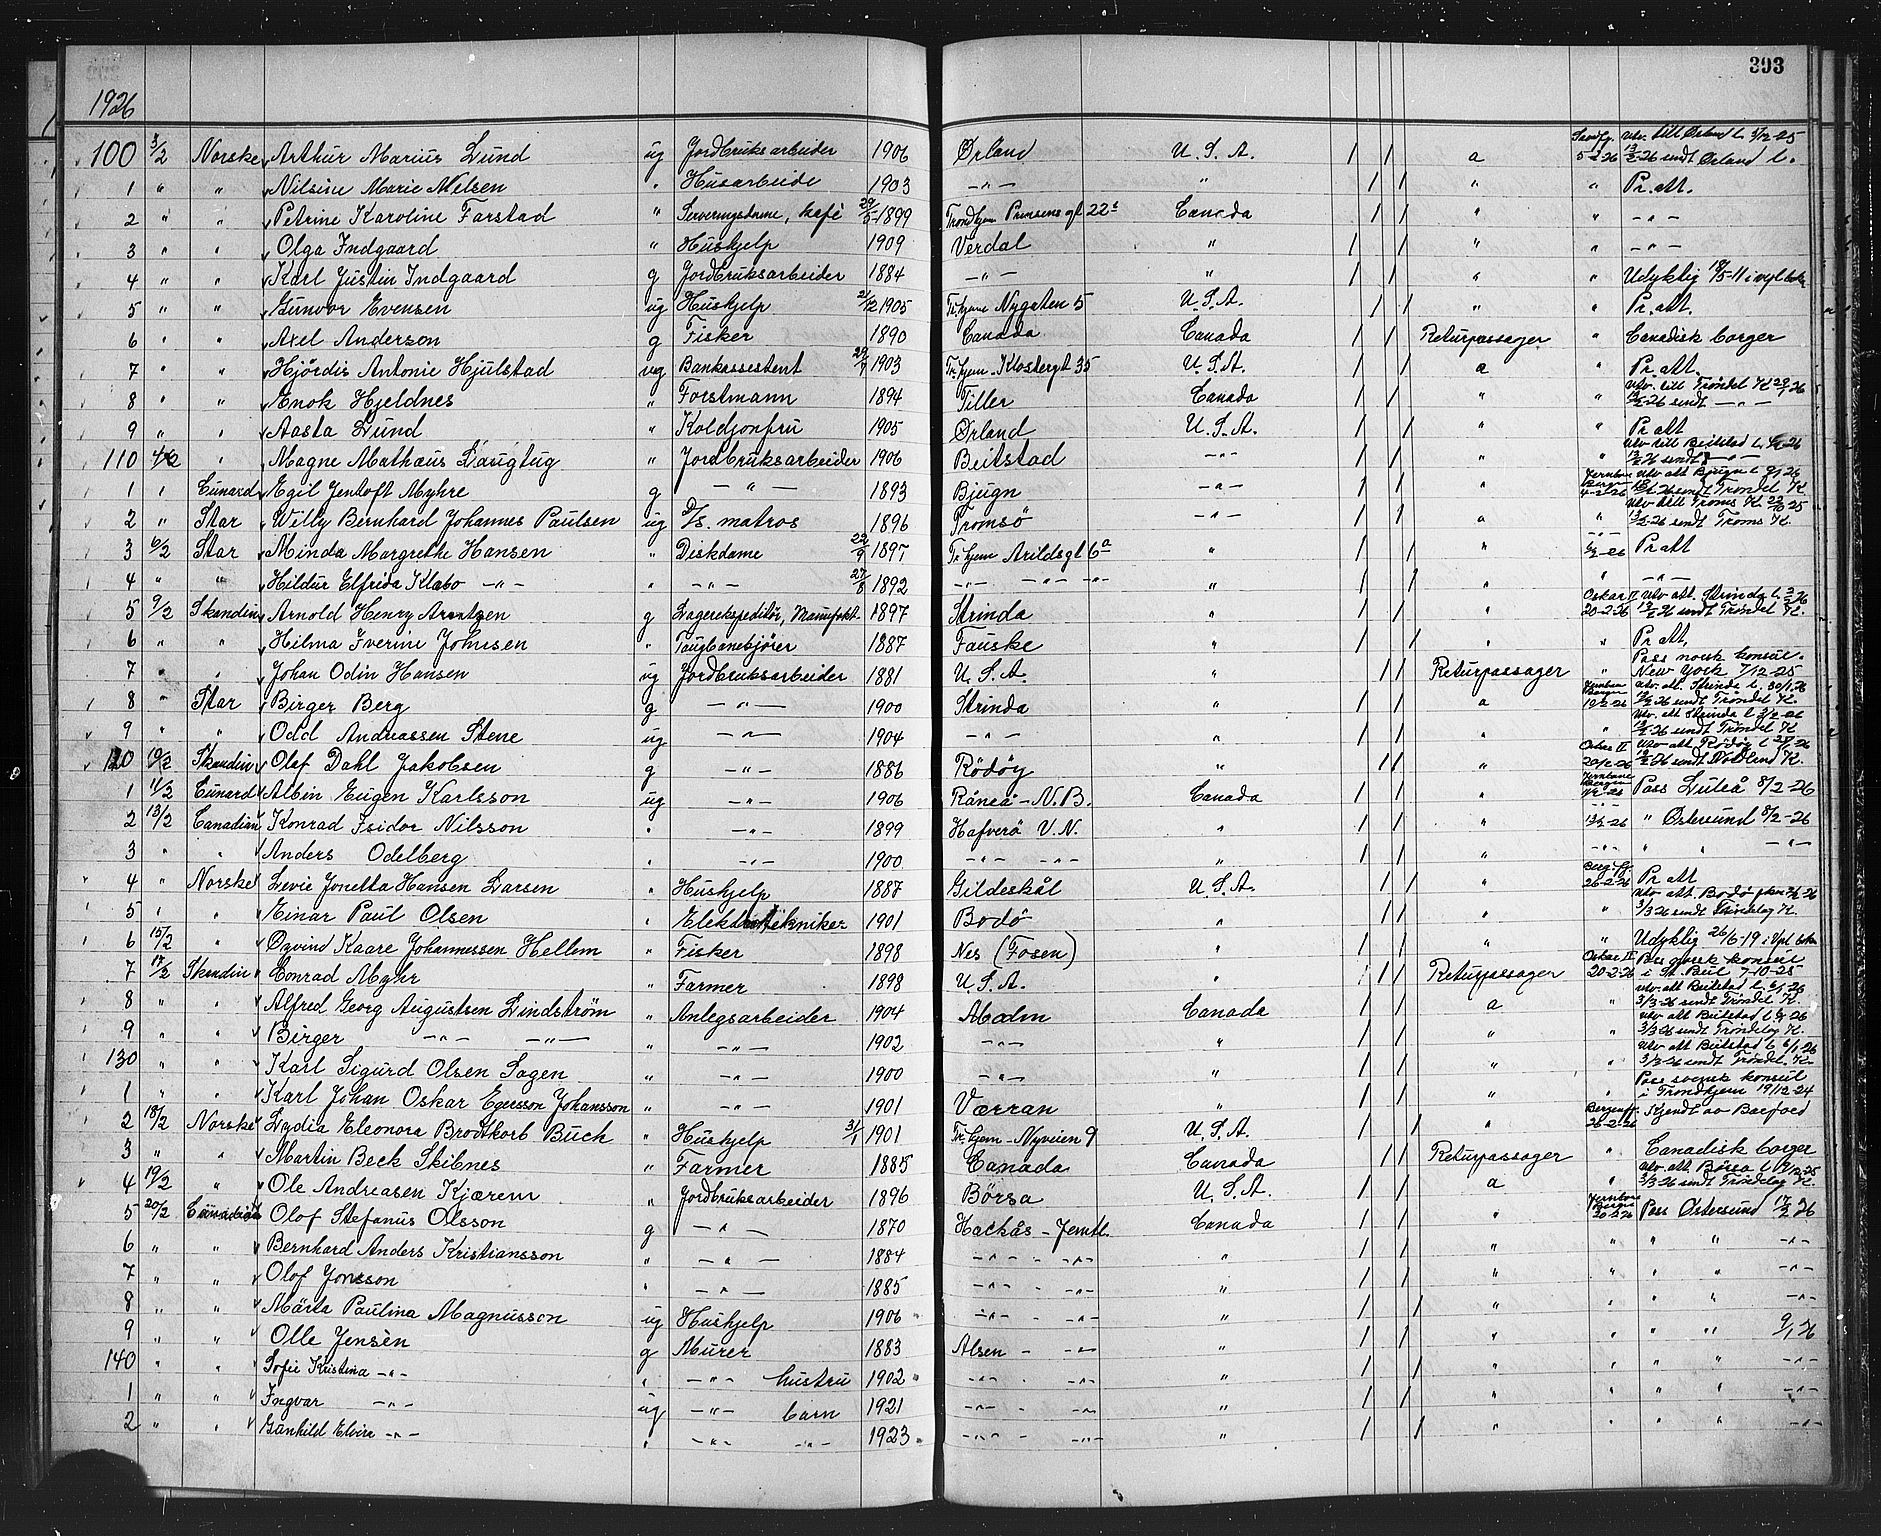 303
1926
100 3/2 Norske Arthur Marius Lund ug Jordbruksarbeider 1906 Ørland U.S.A. / / a 5-2-26 utv. till Ørland l. 3/12-25 13/2-26 sendt Ørland l.
1 " " Nilsine Marie Nielsen " Husarbeide 1903 -"- " / / " " Pr. att.
2 " " Petrine Karoline Farstad " Serveringsdame, kafé 29/5-1899 Trondhjem Prinsens gt 22 Canada / / " " -"-
3 " " Olga Indgaard " Hushjelp 1909 Verdal " / / " " -"-
4 " " Karl Justin Indgaard g Jordbruksarbeider 1884 -"- " / / " " Udyktig
5 " " Gunvor Evensen ug Hushjelp 21/12 1905 Tr.hjem Nygaten 5 U.S.A. / / " " Pr. att.
6 " " Axel Anderson g Fisker 1890 Canada Canada / / Returpassager " Canadisk borger
7 " " Hjördis Antonie Hjulstad ug Bankassistent 1903 Tr.hjem Klostergt 35 U.S.A. / / a " Pr. att.
8 " " Enok Hjeldnes " Forstmann 1894 Tiller Canada / / " " 13/2-26 sendt -"-
9 " " Aasta Lund " Koldjomfru 1905 Ørland U.S.A. / / " " Pr att
110 4/2 " Magne Mathæus Daugtug " Jordbruksarbeider 1906 Beitstad -"- / / " " utv till Beitstad l. 13/2-26 sendt -"-
1 " Cunard Egil Jentoft Myhre g -"- 1893 Bjugn -"- / / " Jernbane Bergen 4-2-26 utv att Bjugn l sendt Tröndel K.
2 " Star Willy Bernhard Johannes Paulsen ug D/s. matros 1896 Tromsö -"- / / a " utv att Troms K. 13/2-26 sendt Troms K.
3 6/2 Star Minda Margrethe Hansen " Diskdame 22/9 1897 Tr.hjem Arildsgt 6a " / / " Pr att
4 " " Hildur Elfrida Klabo -"- " -"- 27/8 1892 -"- -"- -"- " / / " " -"-
5 9/2 Skandin Arnold Henry Arentzen g Lagerekspeditör, Manufakt. 1897 Strinda " / / " Oskar II 20-2-26 utv att. Strinda l. 13/2-26 sendt Tröndel K.
6 " " Hilma Iverine Johnsen " 1887 Fauske " / / " " Pr att,
7 " " Johan Odin Hansen ug Jordbruksarbeider 1881 U.S.A. " / / Returpassager " Pass norsk konsul New York 7/12-25
8 " Star Birger Berg g -"- 1900 Strinda " / / a Jernbane Bergen utv. att. Strinda l. 30/1-26 sendt Tröndel K.
9 " " Odd Andreassen Stene ug -"- 1904 -"- " / / " " utv. att Strinda l sendt Tröndel K
120 10/2 Skandin Olaf Dahl Jakobsen g -"- 1886 Rödöy " / / " Oskar II utv att Rödöy l sendt Nordland K.
1 11/2 Cunard Albin Eugen Karlsson ug -"- 1906 Råneå - N.B. Canada / / " Jernbane Bergen Pass Luleå 8/2-26
2 13/2 Canadian Konrad Isidor Nilsson " -"- 1899 Hafverö V.N. " / / " " Östersund 8/2-26
3 " " Anders Odelberg " -"- 1900 -"- -"- " / / " -"- " " -"-
4 " Norske Levie Jonetta Hansen Larsen " Hushjelp 1887 Gildeskål U.S.A. / / " 26-2-26 Pr att
5 " " Einar Paul Olsen " Elektrotekniker 1901 Bodö " / / " " utv att. Bodö 3/3-26 sendt Tröndelag K.
6 15/2 " Øyvind Kaare Johannessen Hellem " Fisker 1898 Nes (Fosen) " / / " " Udyktig 26/6-19 i Vpl bok
7 17/2 Skandin Conrad Myhr " Farmer 1898 U.S.A. " / / Returpassager Oskar II 20-2-26 Pass norsk konsul i St. Paul 7-10-25
8 " " Alfred Georg Augustsen Lindström " Anlegsarbeider 1904 Malm Canada / / a " utv att Beitstad l. 6/1-26 3/3-26 sendt Tröndel K.
9 " " Birger -"- -"- " -"- 1902 -"- " / / " " utv att Beitstad l 3/3-26 sendt Tröndelag K.
130 " " Karl Sigurd Olsen Sagen " -"- 1900 -"- " / / " " utv att Beitstad l 6/1-26 3/3-26 sendt Tröndel. K.
1 " " Karl Johan Oskar Egersson Johansson " -"- 1901 Værran " / / " " Pass svensk konsul i Trondhjem 19/12-24
2 18/2 Norske Lydia Eleonora Brodtkorb Buch " Hushjelp 3/1 1901 Tr.hjem - Nyveien 9 U.S.A. / / " 26-2-26 Kjendt av
3 " " Martin Beck Skibnes " Farmer 1885 Canada Canada / / Returpassager " Canadisk borger
4 19/2 " Ole Andreasen Kjærem " Jordbruksarbeider 1896 Börsa U.S.A. / / a " utv. att. Börsa l 3/3-26 sendt Tröndelag K.
5 20/2 Canadian Olof Stefanus Olsson g -"- 1870 Hackås - Jemtl. Canada / / " Jernbane Bergen 20-2-26 Pass Östersund 17/2-26
6 " " Bernhard Anders Kristiansson " -"- 1884 -"- -"- " / / " " " " -"-
7 " " Olof Jonsson " -"- 1885 -"- -"- " / / " " " " -"-
8 " " Märta Paulina Magnusson ug Hushjelp 1906 -"- -"- " / / " " " " -"-
9 " " Olle Jensèn g Murer 1883 Alsen - -"- " / / " " " " 9/1-26
140 " " Sofie Kristina -"- " -"- hustru 1902 -"- -"- " / / " " " " -"-
1 " " Ingvar -"- ug -"- barn 1921 -"- -"- " / / " " " " -"-
2 " " Gunhild Elvira -"- " -"- -"- 1923 -"- -"- " / / " " " " -"-